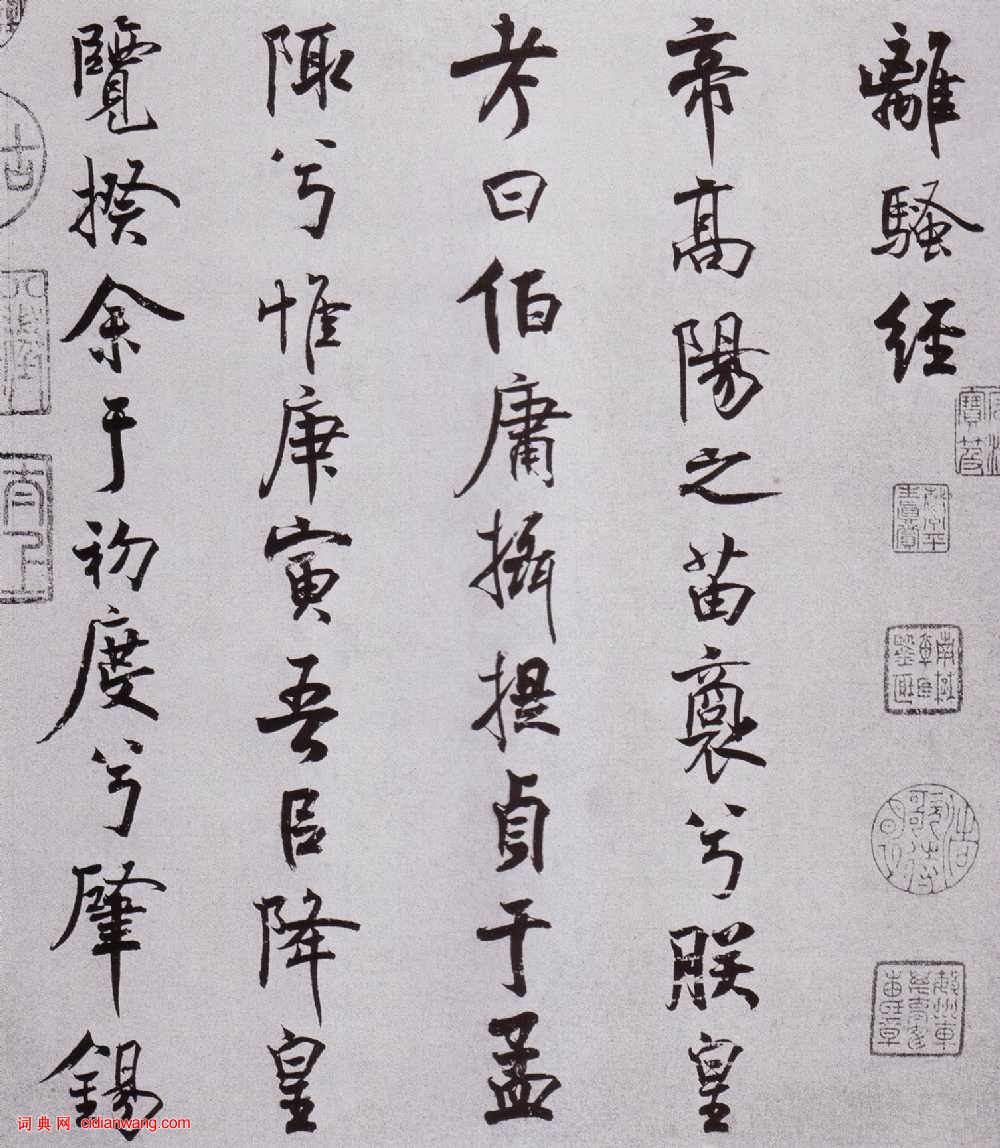 離騷經
帝高陽之苗裔兮朕皇
考曰伯庸攝提貞于孟
陬兮惟庚寅吾㠯降皇
覽揆余于初度兮肇錫
词典网 cidianwang.com